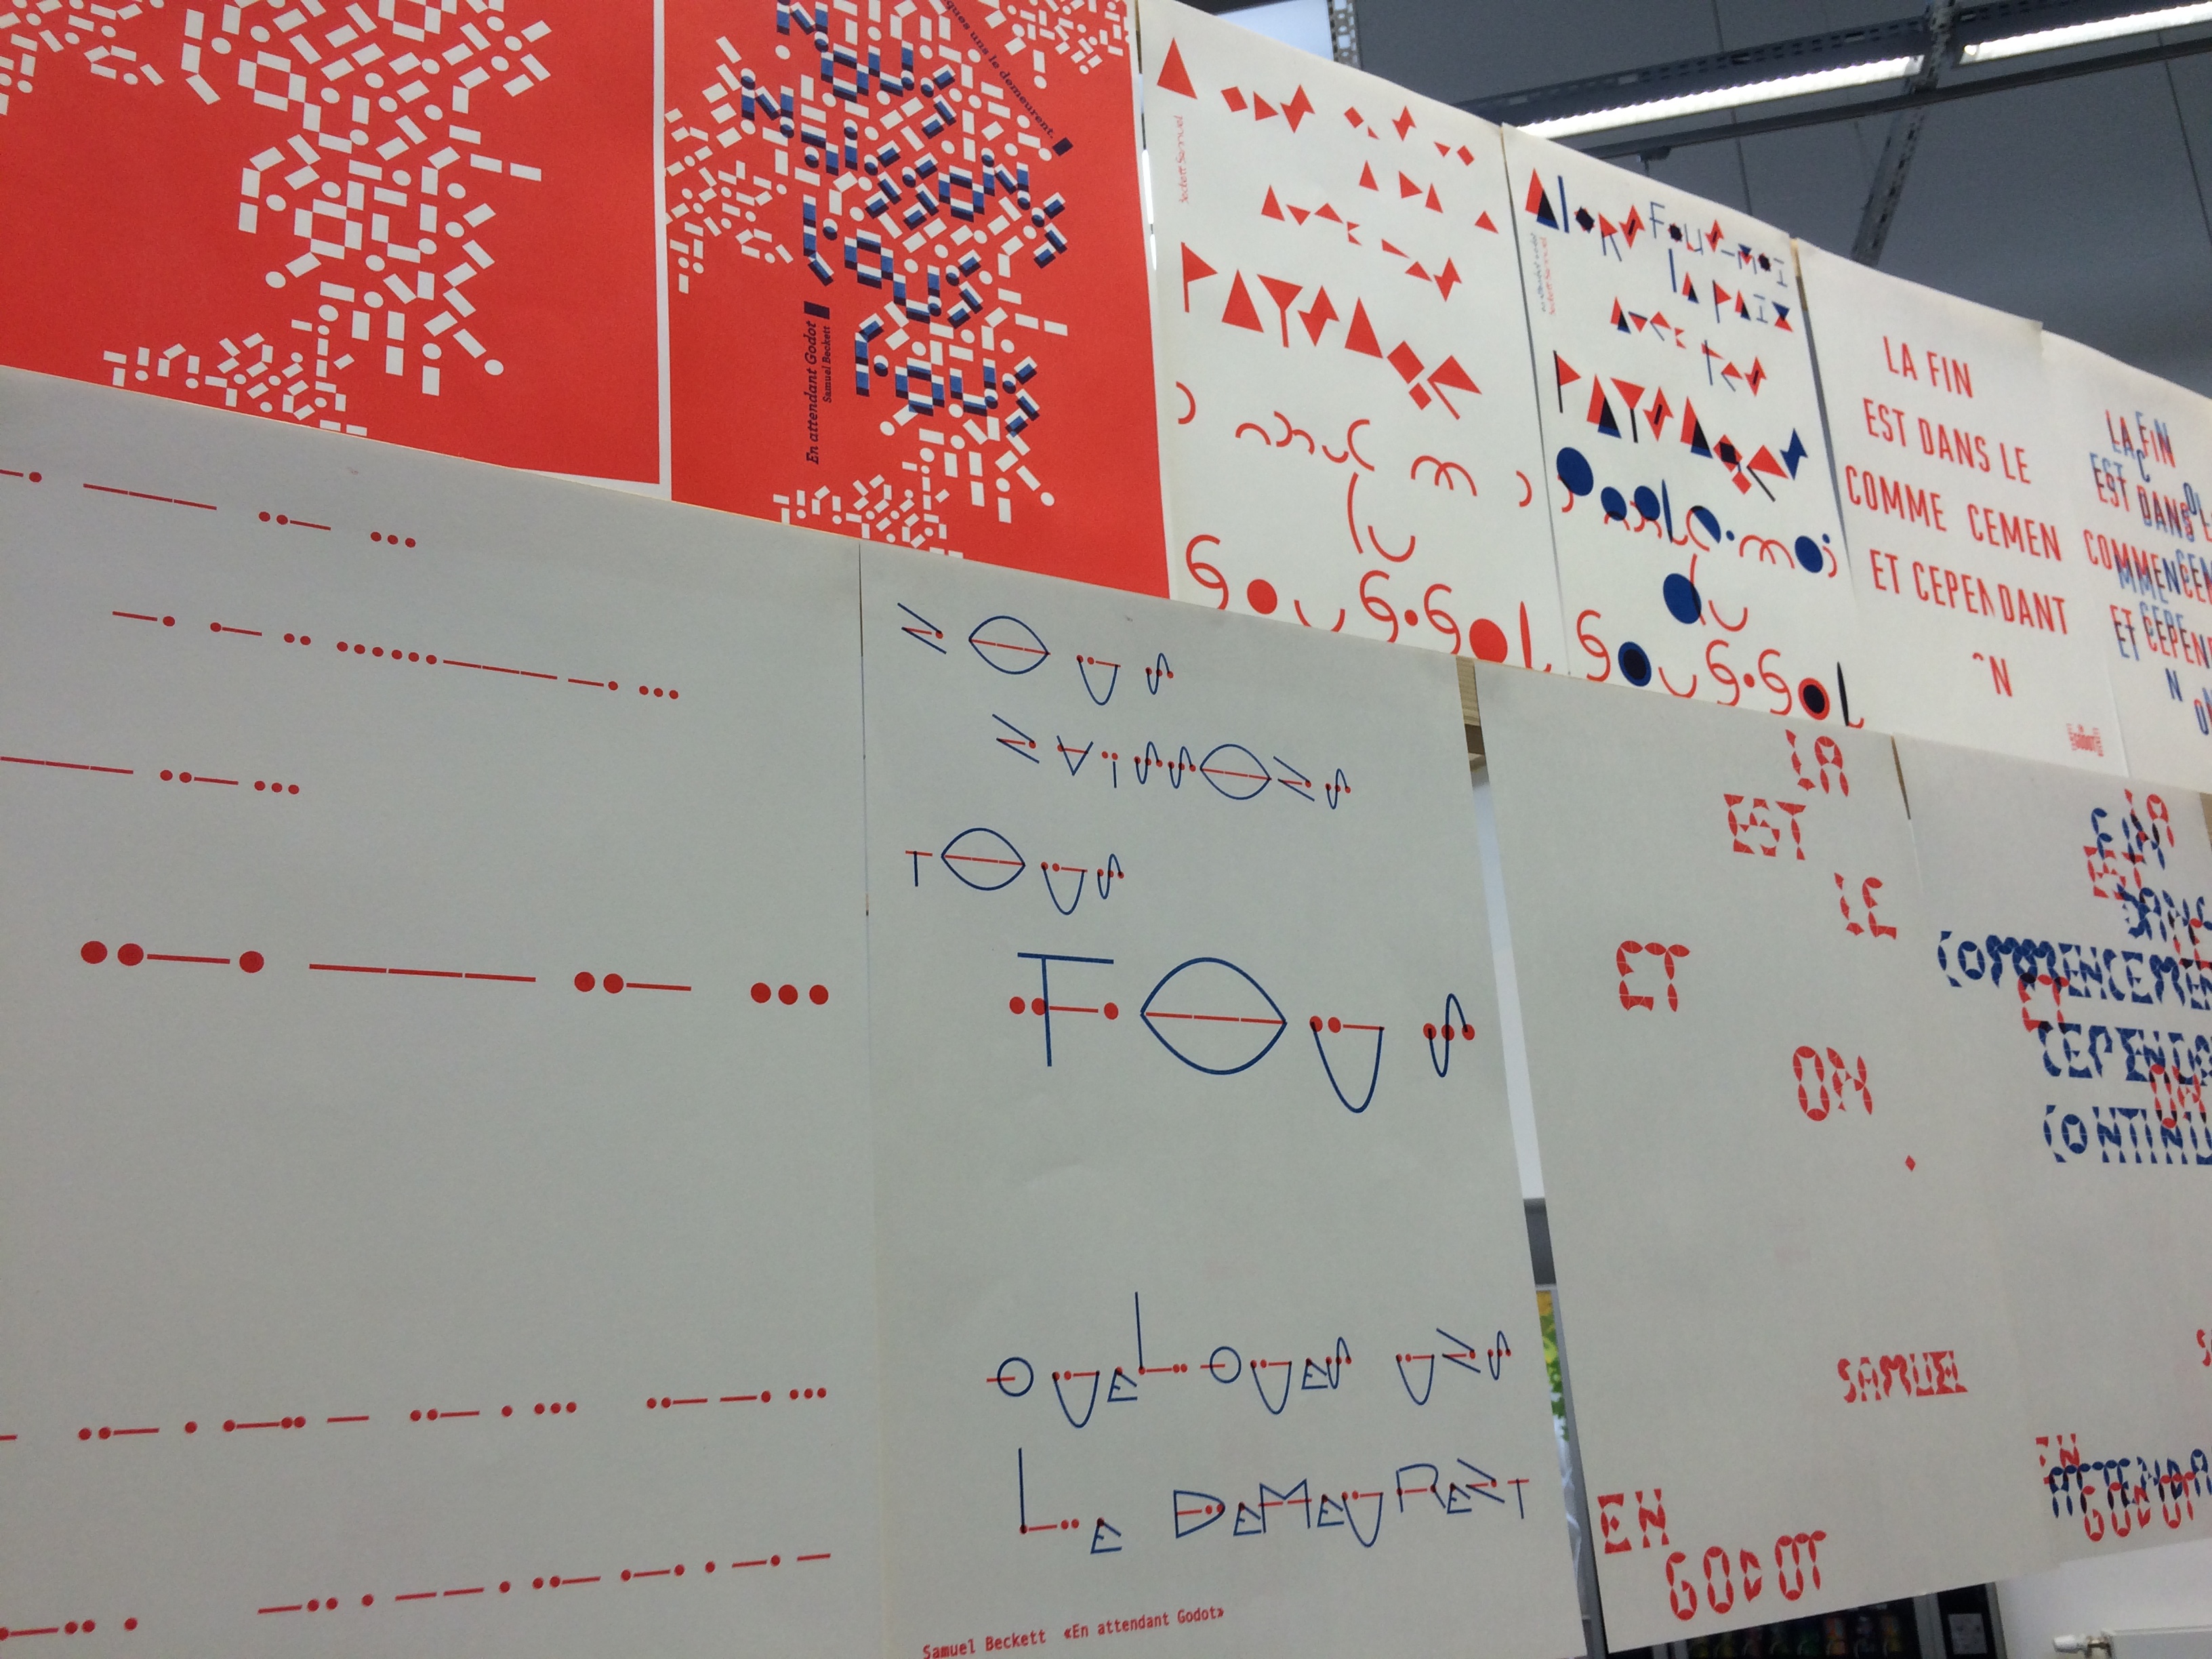 ques uns le demeurent.
NOUS
NAISSONS
TOUS
FOUS
En attendant Godot
Samuel Beckett
Beckett Samuel
PAYSAN
Alors Fous-moi
la PAIX
avec tes
PAYSAGES
Parle-moi
du
sous-sol
LA FIN
EST DANS LE
COMME CEMEN
ET CEPENDANT
N
LA FIN
EST DANS
COMMENCEM
ET CEPEN
NOUS
NAISSONS
TOUS
FOUS
QUELQUES UNS
LE DEMEURENT
Samuel Beckett «En attendant Godot»
LA
EST
LE
ET
ON
.
SAMUEL
EN
GODOT
LA
EST
COMMENCEMEN
ET
CEPENDA
ON
CONTINU
EN
ATTENDA
GODOT